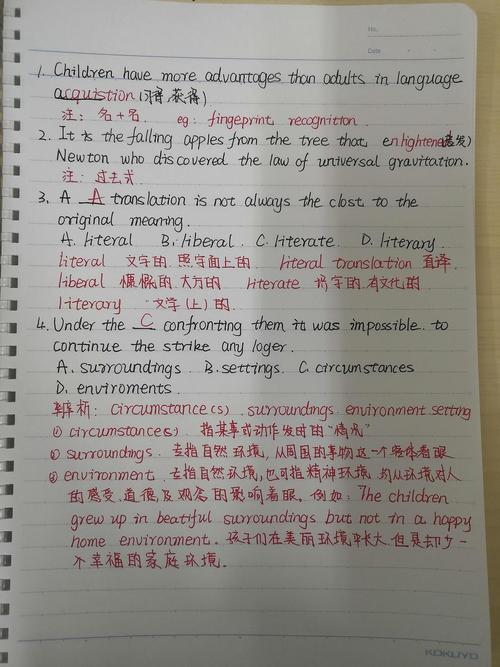 No.
Date
1. Children have more advantages than adults in language
acquistion (习得,获得)
注: 名+名. eg: fingeprint, recognition.
2. It is the falling apples from the tree that enlightened(启发)
Newton who discovered the law of universal gravitation.
注: 过去式.
3. A A translation is not always the clost to the
original meaning.
A. literal B. liberal. C. literate. D. literary.
literal 文字的. 照字面上的. literal translation 直译.
liberal 慷慨的.大方的 literate 识字的.有文化的
literary 文学(上)的.
4. Under the C confronting them it was impossible to
continue the strike any loger.
A. surroundings. B. settings. C. circumstances
D. enviroments.
辨析: circumstance(s). surroundings environment setting
① circumstance(s). 指某事或动作发时的"情况"
② surroundings. 去指自然环境,从周围的事物这一个客体着眼
③ environment. 去指自然环境,也可指精神环境 均从环境对人
的感受.道德及观念的影响着眼. 例如: The children
grew up in beatiful surroundings but not in a happy
home environment. 孩子们在美丽环境中长大.但是却少一
个幸福的家庭环境.
KOKUYO